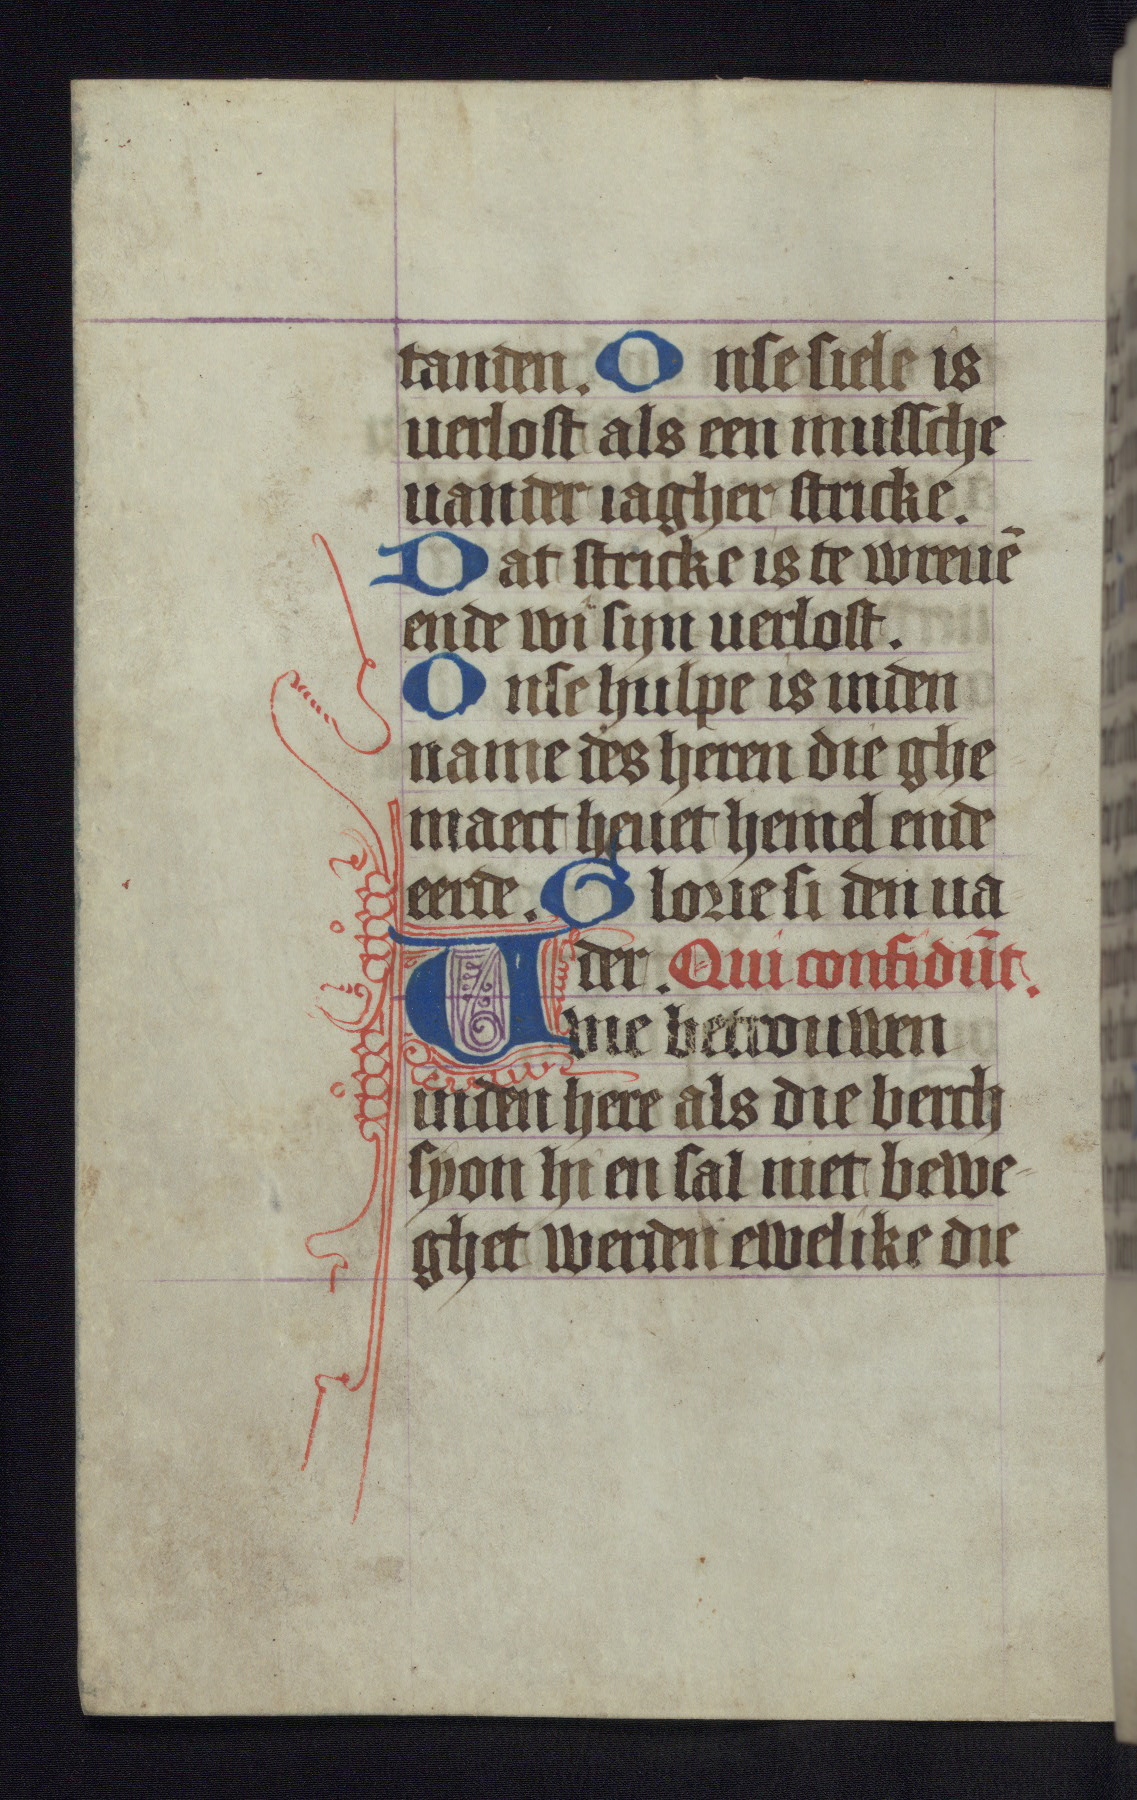 tanden. Onse siele is
uerlost als een mussche
uander iagher stricke.
Dat stricke is te wreuē
ende wi sijn uerlost.
Onse hulpe is inden
name des heren die ghe
maect heuet hemel ende
eerde. Glorie si den ua
der. Qui confidūt.
Uuie betrouwen
inden here als die berch
syon hi en sal niet bewe-
ghet werden ewelike die